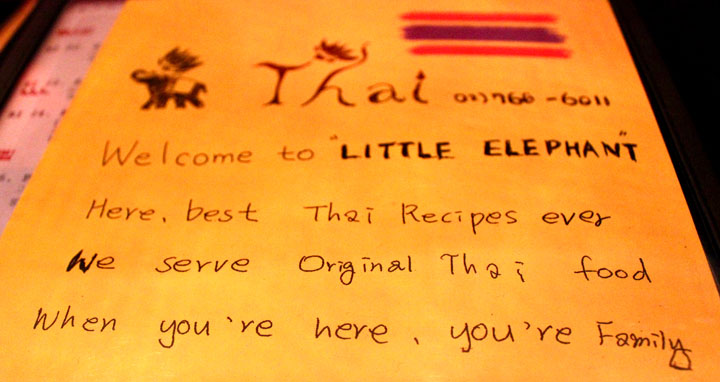 Thai 02)766-6011
Welcome to "LITTLE ELEPHANT"
Here, best Thai Recipes ever
We serve Original Thai food
When you're here, you're Family